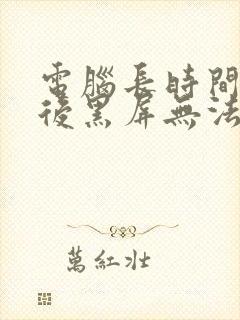 電腦長時間
後黑屏無法
萬紅壯